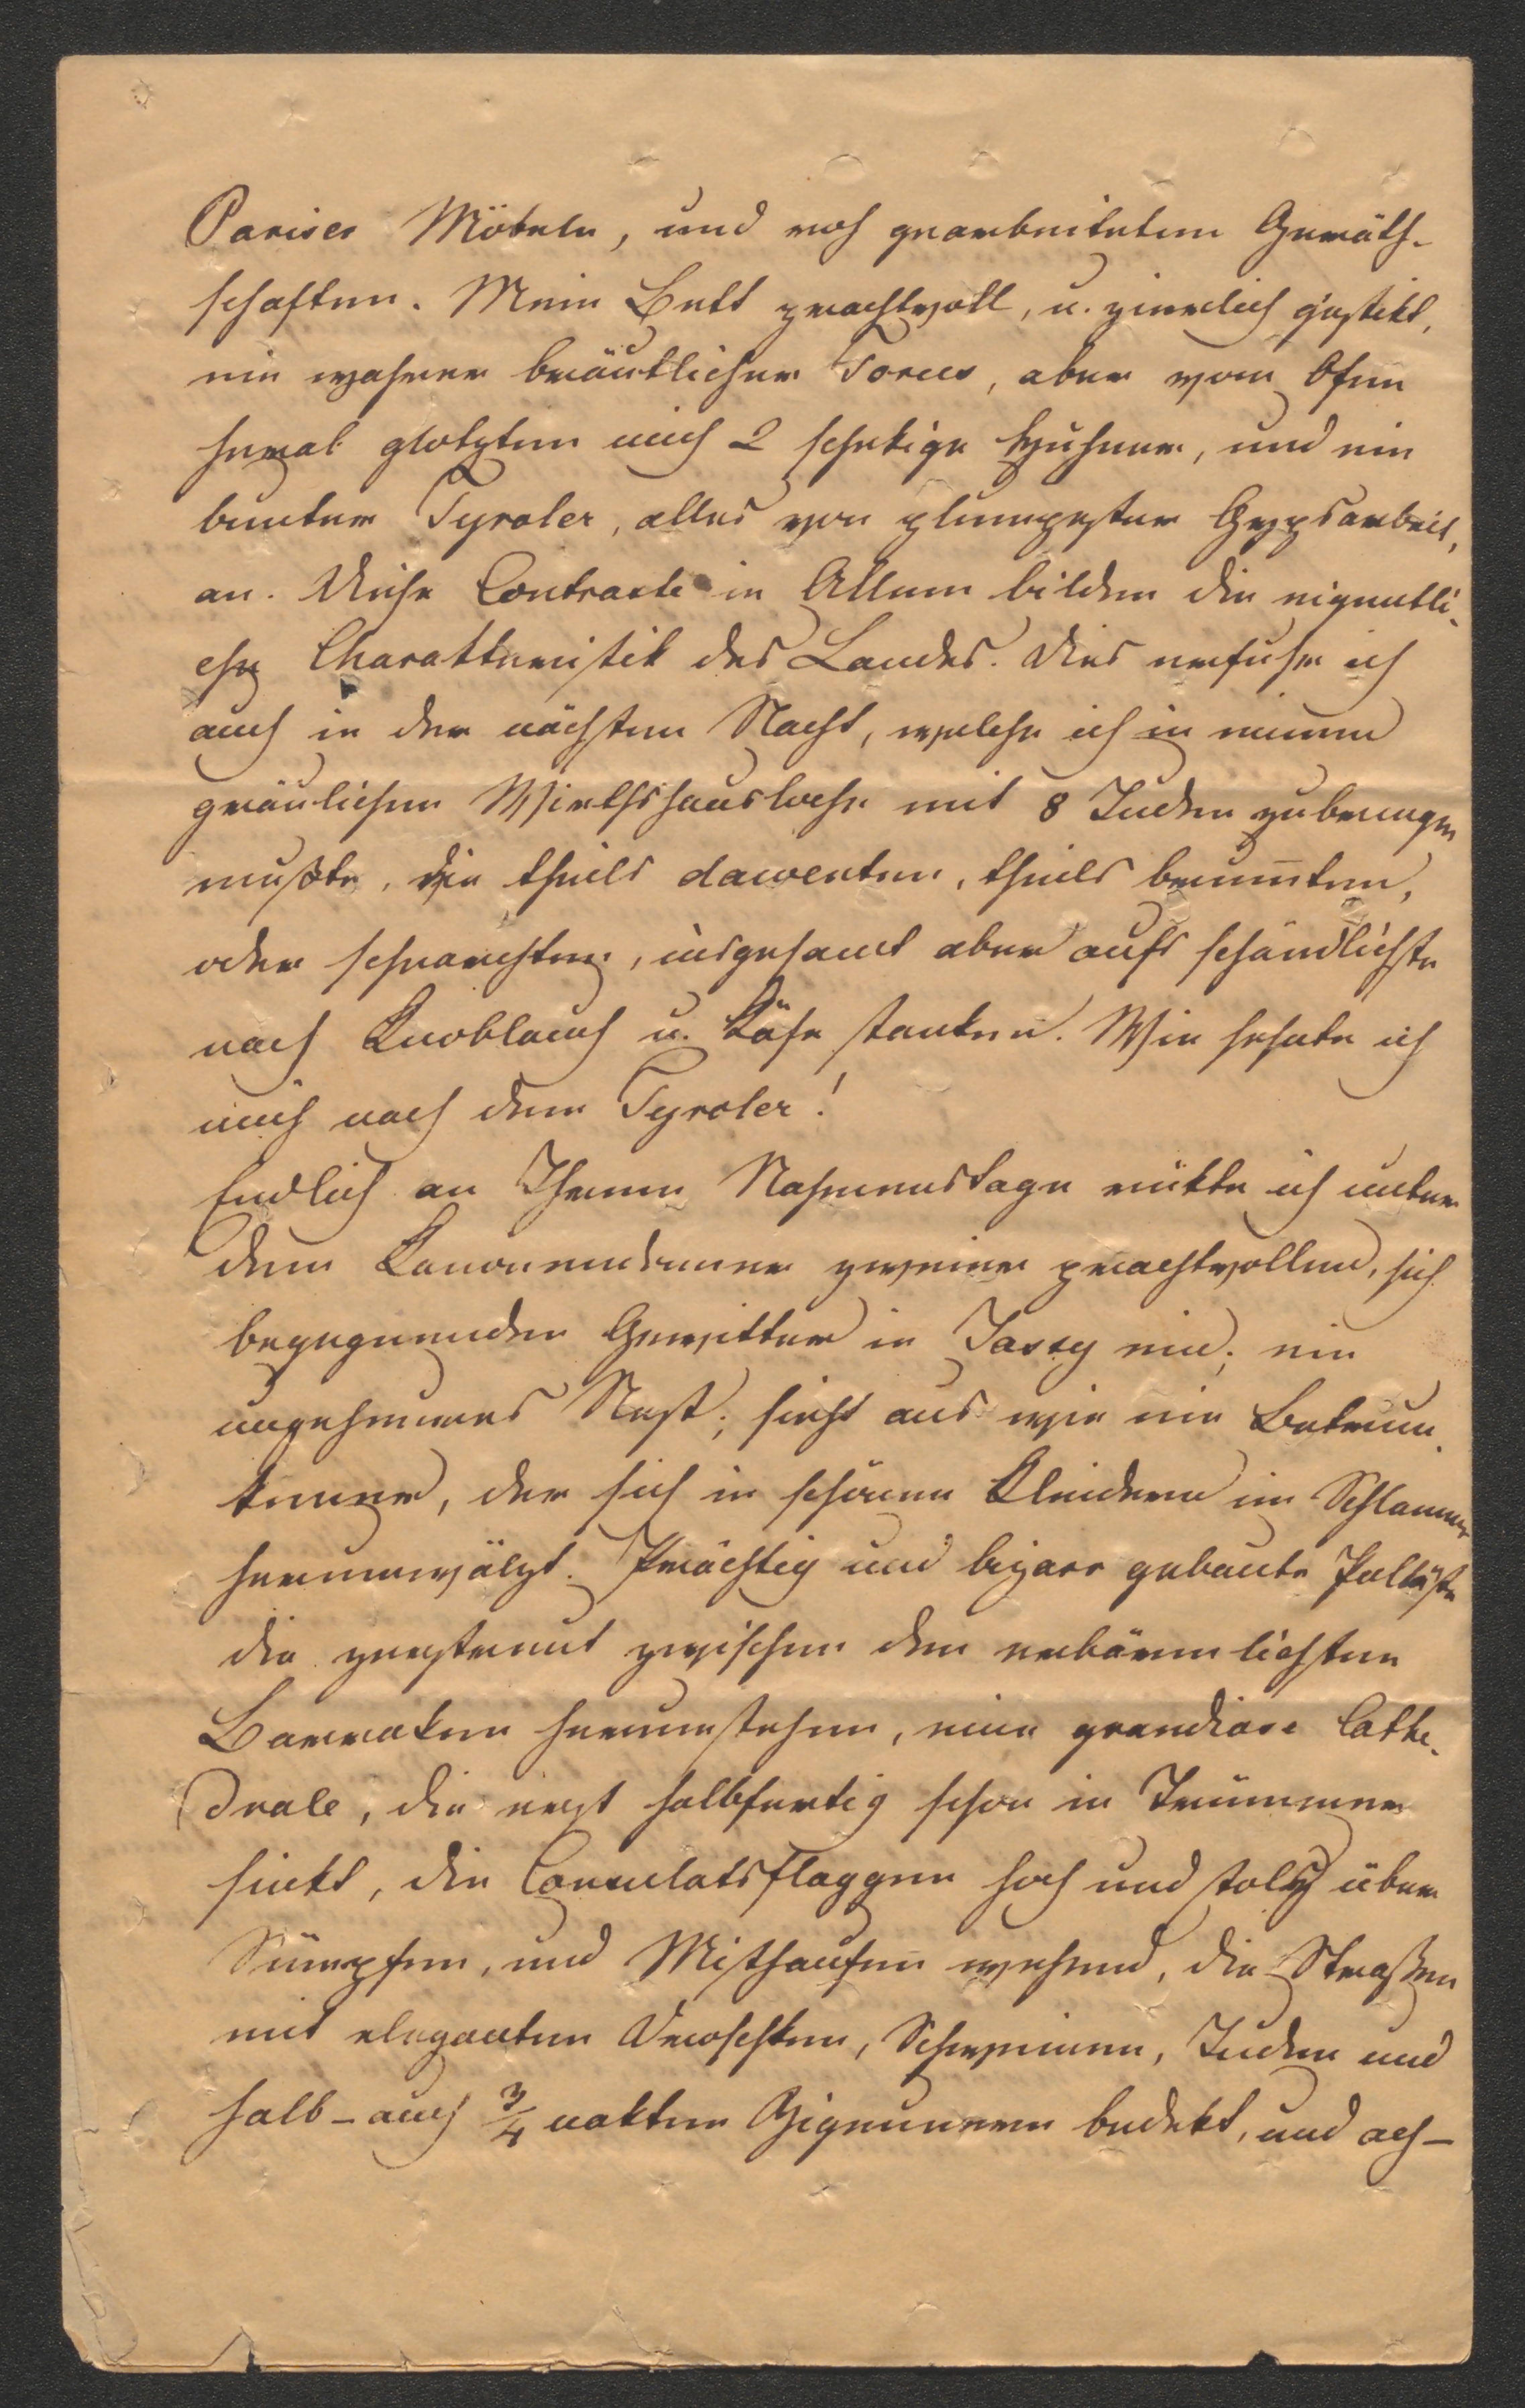 Pariser Möbeln, und roh gearbeiteten Geräth-
schaften. Mein Bett prachtvoll, u. zierlich gestikt,
ein wahrer bräutlicher Torus, aber vom Ofen
herab glotzten mich 2 schekige Huhner, und ein
bunter Tyroler, alles von plumpester Gypsarbeit,
an. Diese Contraste in Allem bilden die eigentli-
che Charakteristik des Landes. Dies erfuhr ich
auch in der nächsten Nacht, welche ich in einem
gräulichen Wirthshausloche mit 8 Juden zubringen
mußte, die theils dawenten, theils brum̅ten,
oder schnarchten, insgesamt aber aufs schändlichste
nach Knoblauch u. Käse stanken. Wie sehnte ich
mich nach dem Tyroler!
Endlich an Ihrem Nahmenstage rükte ich unter
dem Kanonendonner zweier prachtvollen, sich
begegnenden Gewitter in Jassy ein; ein
ungeheures Nest; sieht aus wie ein Betrun-
kener, der sich in schönen Kleidern im Schlamme
herumwälzt. Prächtig und bizarr gebaute Palläste
die zerstreut zwischen den erbärmlichsten
Barraken herumstehen, eine grandiose Cathe-
drale, die erst halbfertig schon in Trümmer
sinkt, die Consulatsflaggen hoch und stolz über
Sümpfen, und Misthaufen wehend, die Straßen
mit eleganten Droschken, Schweinen, Juden und
halb- auch 3/4 nakten Zigeunern bedekt, und ach-